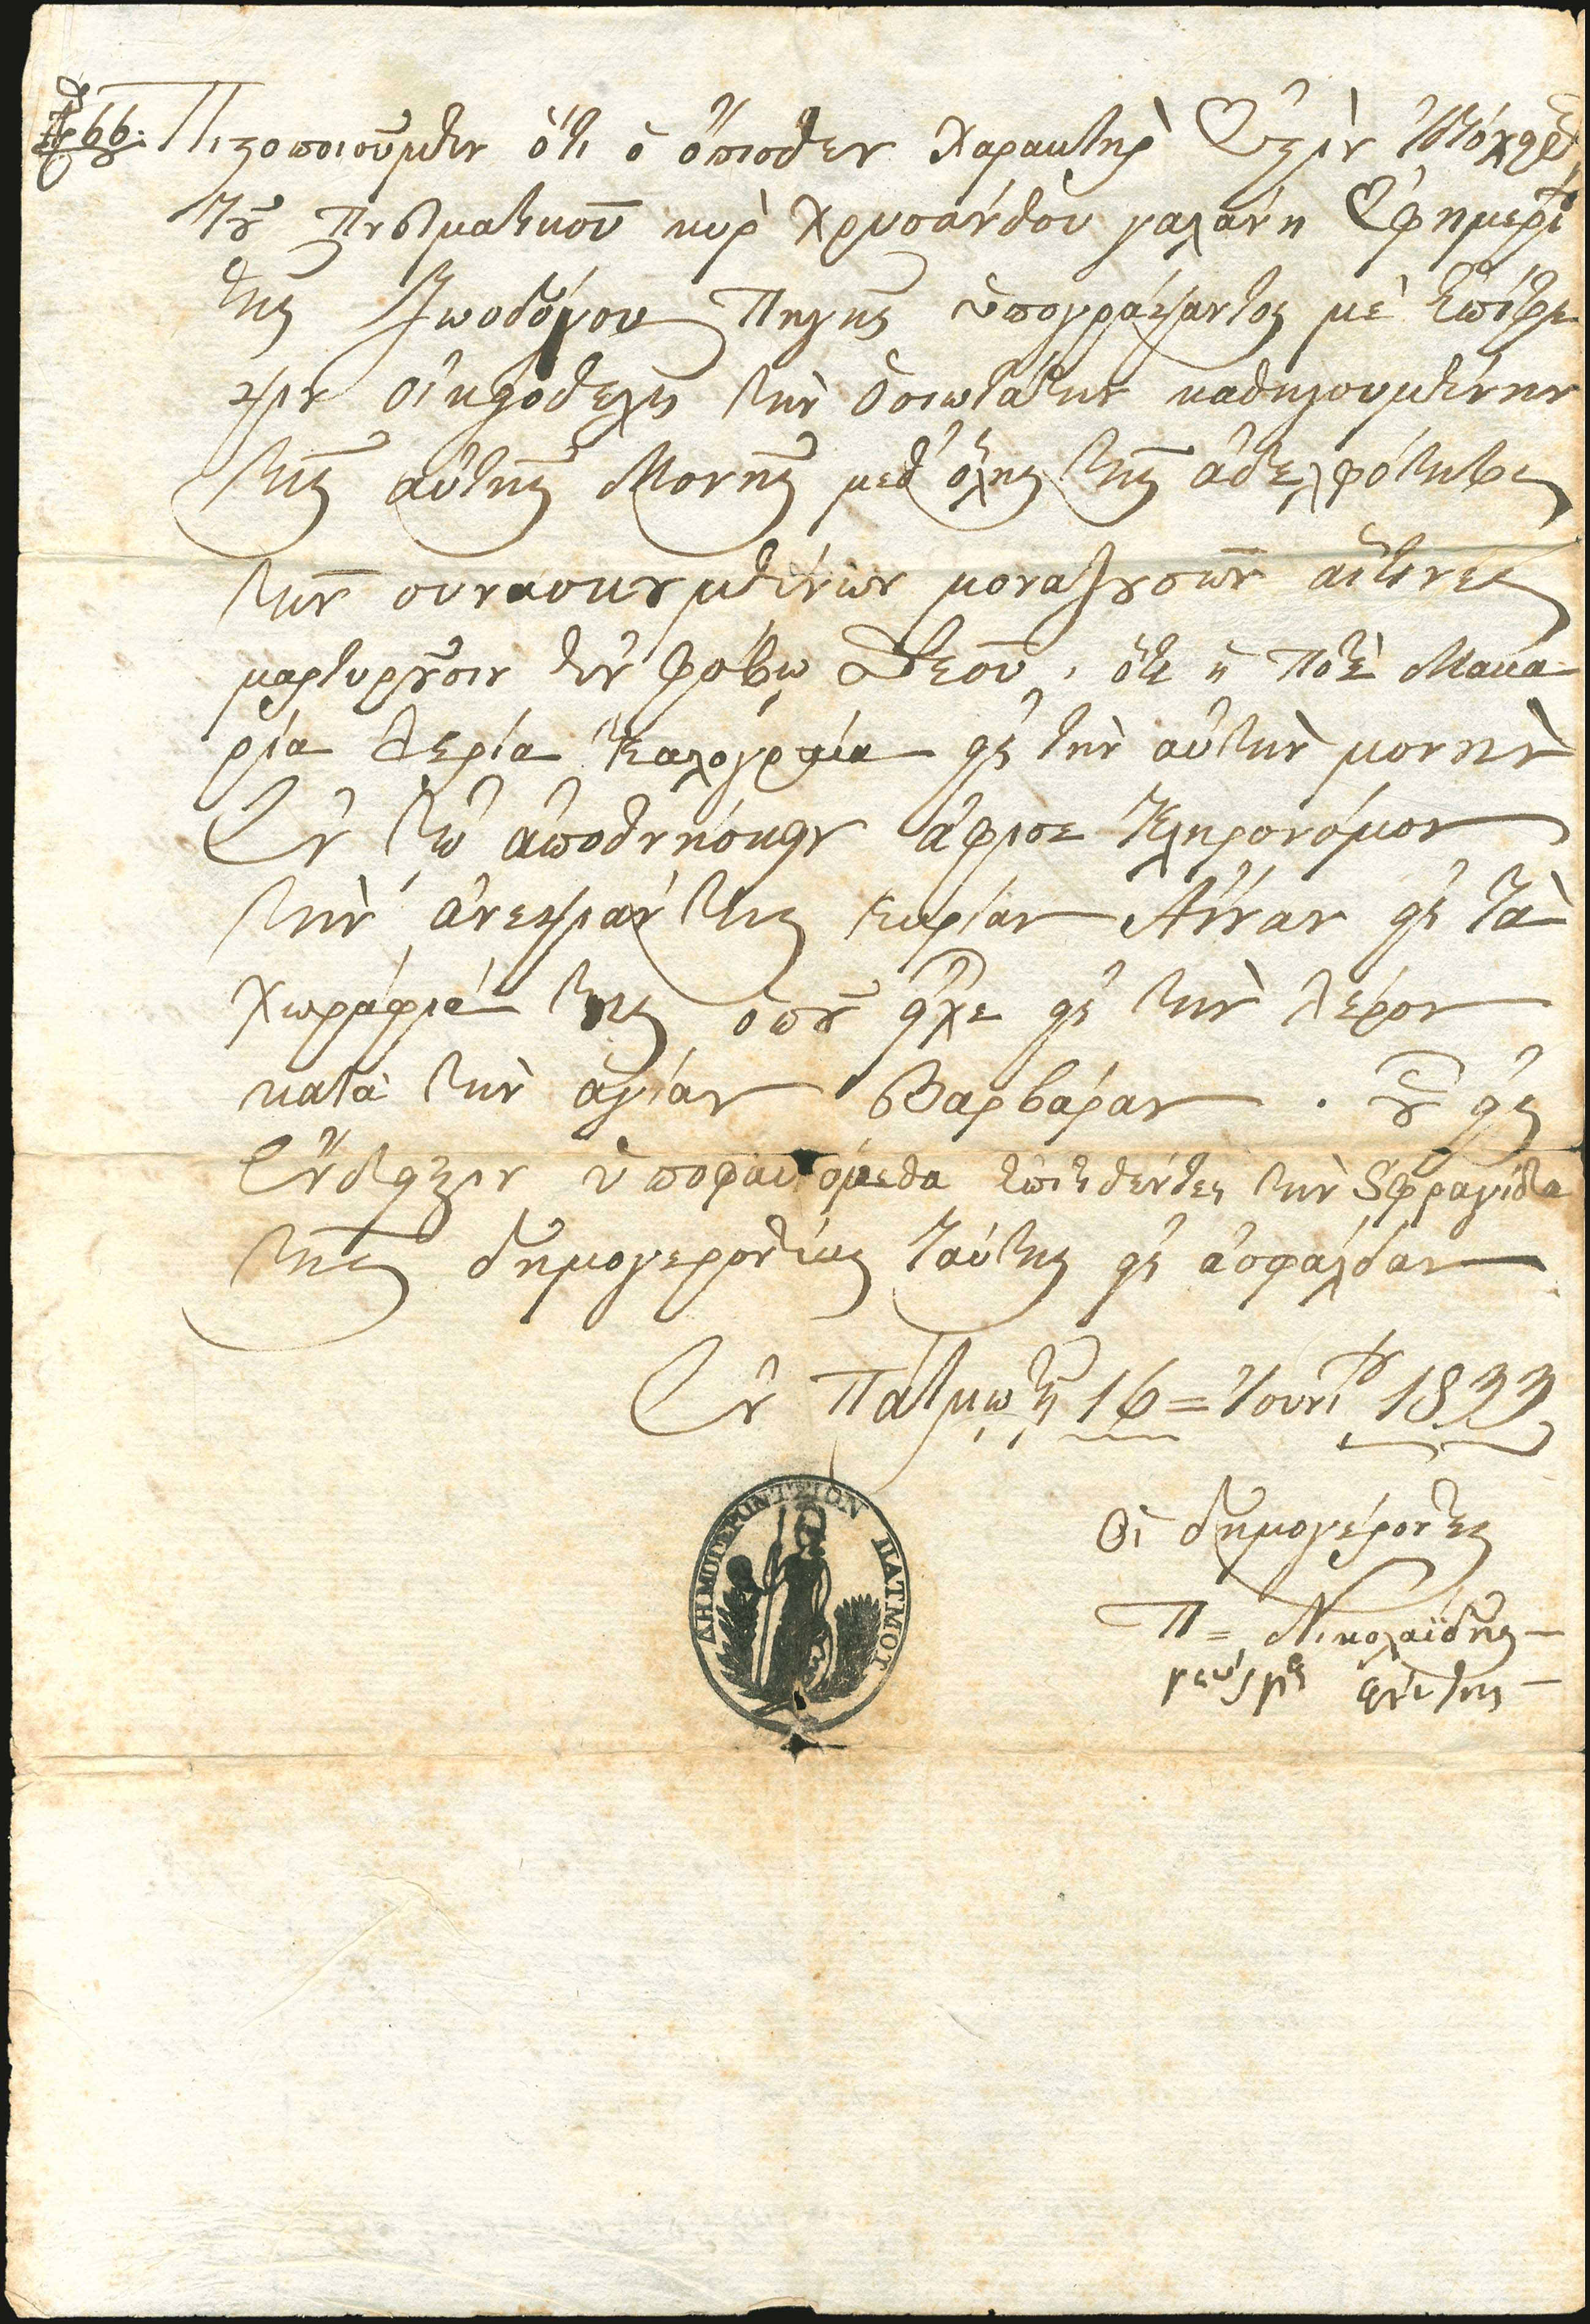 66.
Πιστοποιούμεν ὅτι ὁ ὄπισθεν χαρακτὴρ ἐστὶν ἰδιόχειρος
τοῦ πνευματικοῦ κυρ Χρυσάνθου γαλάνη ἐφημερίου
της Ζωοδόχου Πηγῆς ὑπογράψαντος μὲ ἐπίτρε
ψιν οἰκειοθελῶς τὴν ὁσιωτάτην καθηγουμένην
τῆς αὐτῆς Μονῆς μεθ' ὅλης τῆς ἀδελφότητος
τῶν συνασκουμένων μοναζουσῶν αἵτινες
μαρτυροῦσιν ἐν φόβῳ Θεοῦ, ὅτι ἡ ποτὲ Μακα-
ρία λερία καλογραία εἰς τὴν αὐτὴν μονὴν
Ἐν τῷ ἀποθνήσκειν ἄφισε κληρονόμον
τὴν ἀνεψιάν της κυρίαν Ἄνναν εἰς τὰ
χωράφιά της ὁποῦ εἶχε εἰς τὴν λέρον
κατὰ τὴν ἁγίαν Βαρβάραν. οὗ εἰς
ἔνδειξιν ὑποφαινόμεθα ἐπιθέντες τὴν Σφραγίδα
τῆς δημογεροντίας ταύτης εἰς ἀσφάλειαν
Ἐν Πάτμῳ τῇ 16 = Ἰουνίου 1833
ΔΗΜΟΓΕΡΟΝΤΕΙΟΝ ΠΑΤΜΟΥ
Οἱ δημογέροντες
Π = Νικολαΐδης
γεώργιος